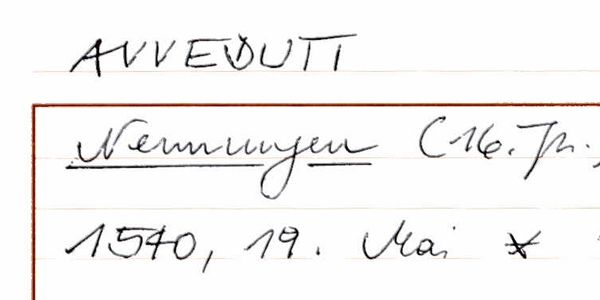 AVVEDUTI
Nennungen (16. Jh.)
1540, 19. Mai *